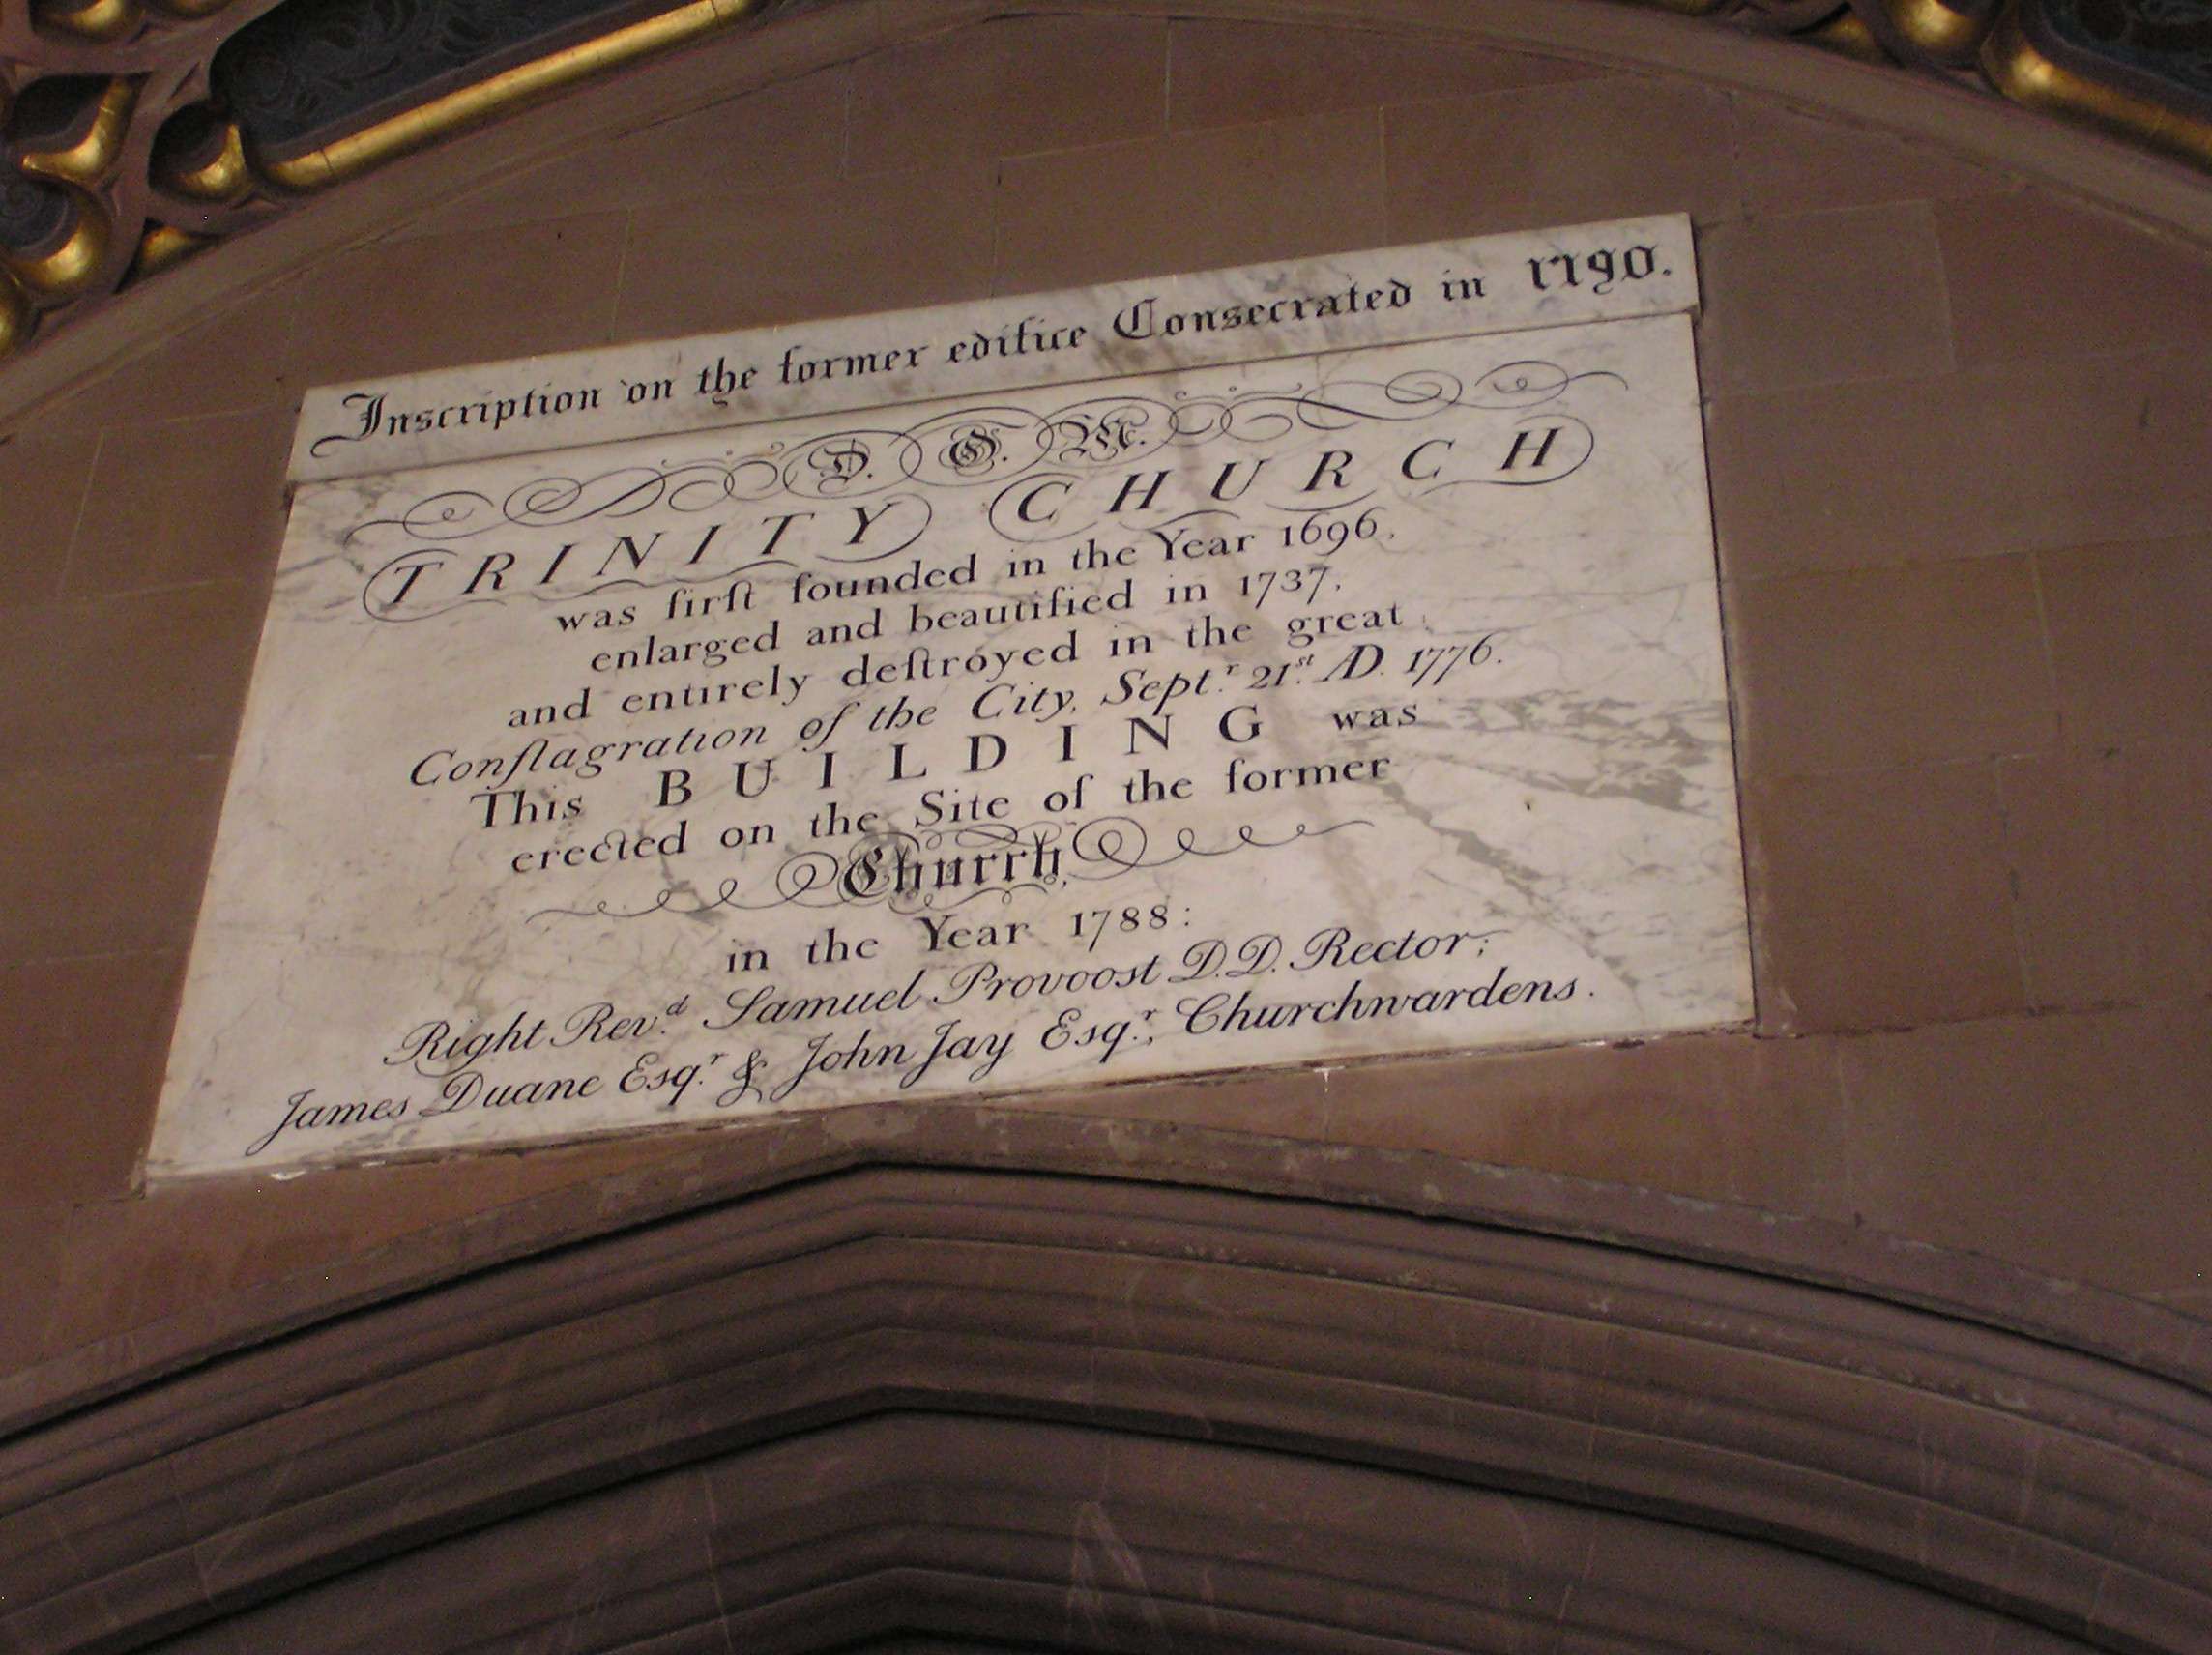 Inscription on the former edifice Consecrated in 1790.
D. O. M.
TRINITY CHURCH
was firſt founded in the Year 1696,
enlarged and beautified in 1737,
and entirely deſtroyed in the great
Conflagration of the City, Sept.r 21.st AD. 1776.
This BUILDING was
erected on the Site of the former
Church,
in the Year 1788:
Right Rev.d Samuel Provoost D.D. Rector;
James Duane Esq.r & John Jay Esq.r, Churchwardens.